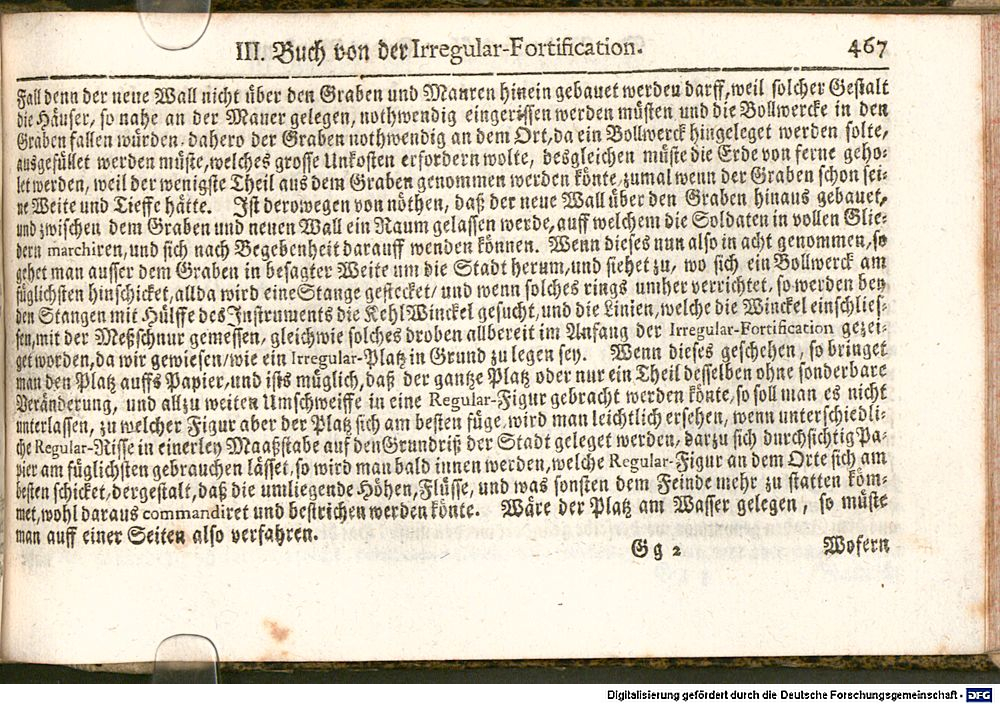 III. Buch von der Irregular-Fortification. 467
Fall denn der neue Wall nicht über den Graben und Mauren hinein gebauet werden darff, weil solcher Gestalt
die Häuser, so nahe an der Mauer gelegen, nothwendig eingerissen werden müsten und die Bollwercke in den
Graben fallen würden. dahero der Graben nothwendig an dem Ort, da ein Bollwerck hingeleget werden solte,
ausgefüllet werden müste, welches grosse Unkosten erfordern wolte, desgleichen müste die Erde von ferne geho-
let werden, weil der wenigste Theil aus dem Graben genommen werden könte, zumal wenn der Graben schon sei-
ne Weite und Tieffe hätte. Ist derowegen von nöthen, daß der neue Wall über den Graben hinaus gebauet,
und zwischen dem Graben und neuen Wall ein Raum gelassen werde, auff welchem die Soldaten in vollen Glie-
dern marchiren, und sich nach Begebenheit darauff wenden können. Wenn dieses nun also in acht genommen, so
gehet man ausser dem Graben in besagter Weite um die Stadt herum, und siehet zu, wo sich ein Bollwerck am
füglichsten hinschicket, allda wird eine Stange gestecket/ und wenn solches rings umher verrichtet, so werden bey
den Stangen mit Hülffe des Instruments die KehlWinckel gesucht, und die Linien, welche die Winckel einschlies-
sen, mit der Meßschnur gemessen, gleichwie solches droben allbereit im Anfang der Irregular-Fortification gezei-
get worden, da wir gewiesen/ wie ein Irregular-Platz in Grund zu legen sey. Wenn dieses geschehen, so bringet
man den Platz auffs Papier, und ists müglich, daß der gantze Platz oder nur ein Theil desselben ohne sonderbare
Veränderung, und allzu weiten Umschweiffe in eine Regular-Figur gebracht werden könte, so soll man es nicht
unterlassen, zu welcher Figur aber der Platz sich am besten füge, wird man leichtlich ersehen, wenn unterschiedli-
che Regular-Risse in einerley Maaßstabe auf den Grundriß der Stadt geleget werden, darzu sich durchsichtig Pa-
pier am füglichsten gebrauchen lässet, so wird man bald innen werden, welche Regular-Figur an dem Orte sich am
besten schicket, dergestalt, daß die umliegende Höhen, Flüsse, und was sonsten dem Feinde mehr zu statten köm-
met, wohl daraus commandiret und bestrichen werden könte. Wäre der Platz am Wasser gelegen, so müste
man auff einer Seiten also verfahren.
Gg 2 Wofern
Digitalisierung gefördert durch die Deutsche Forschungsgemeinschaft - DFG